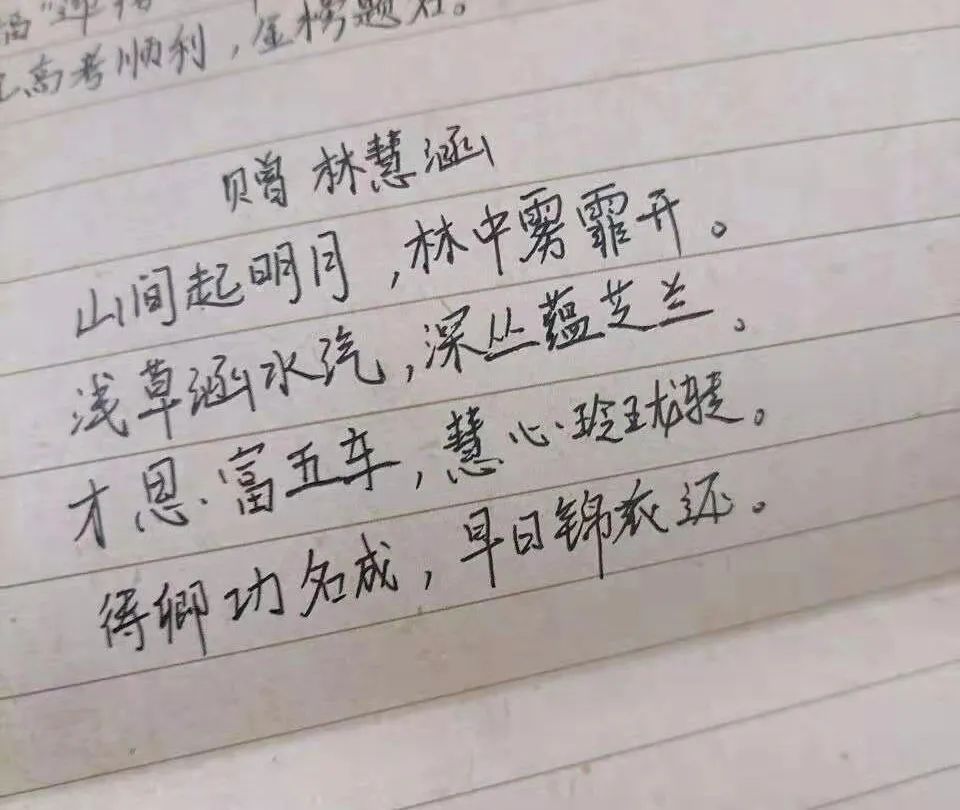 高考顺利,金榜题名。
赠林慧涵
山间起明月,林中雾霏开。
浅草涵水汽,深丛蕴芝兰。
才思富五车,慧心玲珑转。
得卿功名成,早日锦衣还。